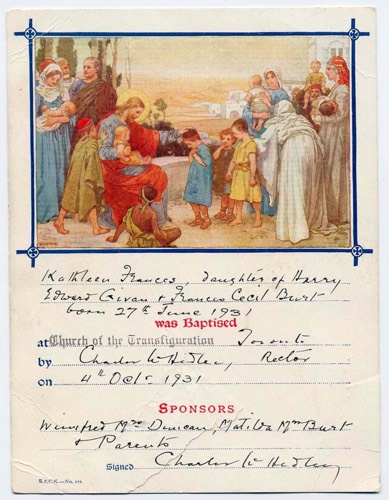 Kathleen Frances, daughter of Harry
Edward Givan & Frances Cecil Burt
born 27th June 1931
was Baptised
at Church of the Transfiguration Toronto
by Charles W Hedley, Rector
on 4th Oct. 1931
SPONSORS
Winifred Duncan, Matilda Burt
& Parents
Signed Charles W Hedley
S.P.C.K.—No.